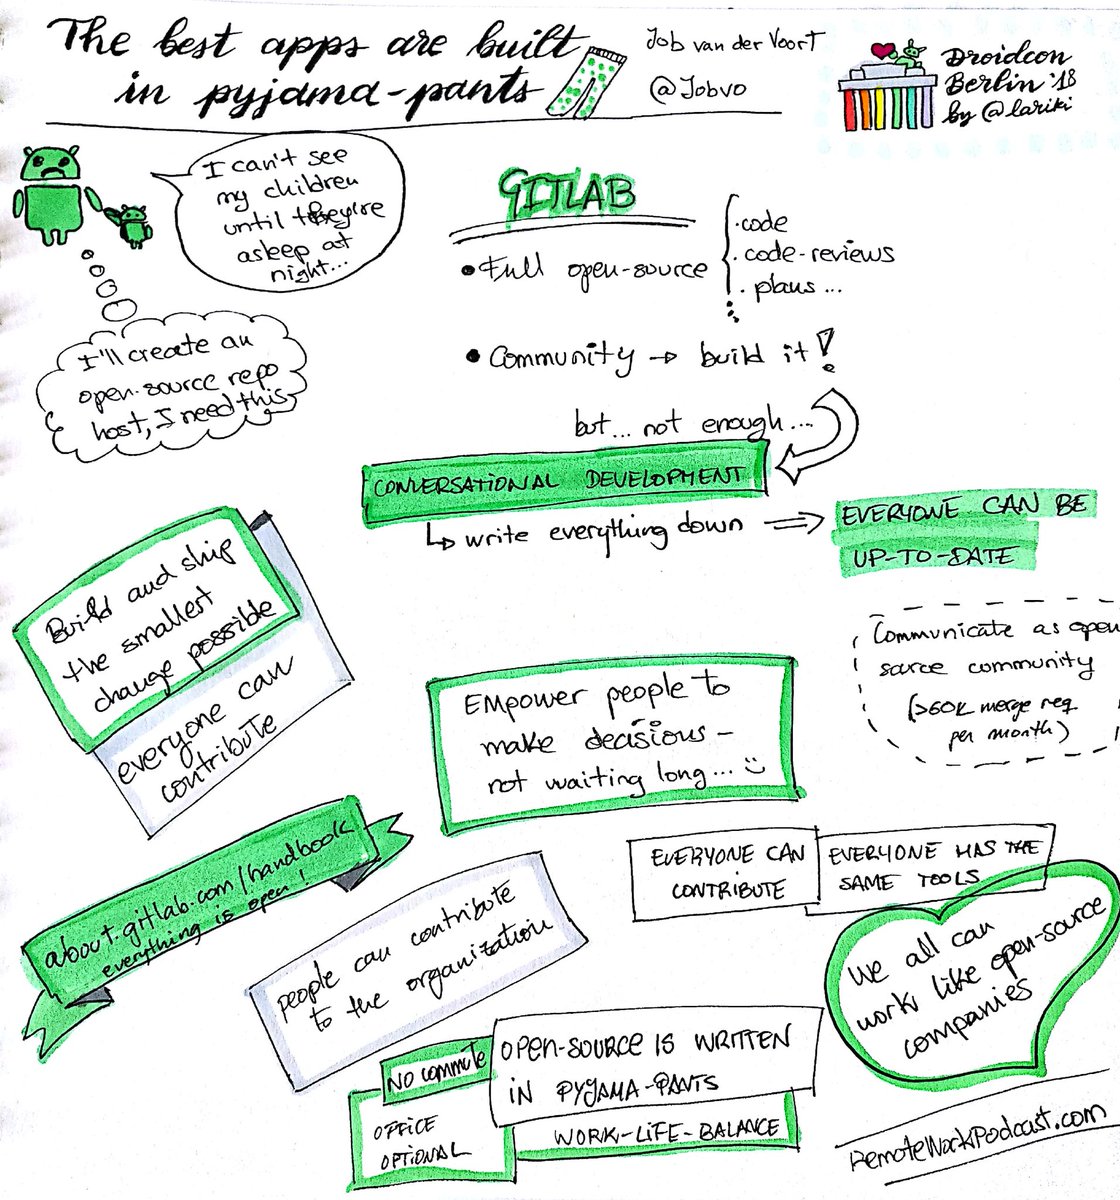 The best apps are built
in pyjama-pants
Job van der Voort
@Jobvo
Droidcon
Berlin '18
by @lariki
I can't see
my children
until they're
asleep at
night...
I'll create an
open-source repo
host, I need this
GITLAB
• Full open-source
· code
· code-reviews
· plans ...
• Community → build it!
but... not enough...
CONVERSATIONAL DEVELOPMENT
↳ write everything down ⇒
EVERYONE CAN BE
UP-TO-DATE
Communicate as open
source community
(>60K merge req
per month)
Build and ship
the smallest
change possible
everyone can
contribute
Empower people to
make decisions –
not waiting long... ☺
about.gitlab.com/handbook
everything is open!
EVERYONE CAN
CONTRIBUTE
EVERYONE HAS THE
SAME TOOLS
people can contribute
to the organization
We all can
work like open-source
companies
NO COMMUTE
OPEN-SOURCE IS WRITTEN
IN PYJAMA-PANTS
OFFICE
OPTIONAL
WORK-LIFE-BALANCE
RemoteWorkPodcast.com